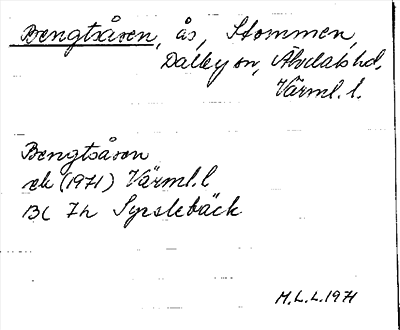 Bengtsåsen, ås, Stommen,
Dalby sn, Älvdals hd,
Värml. l.
Bengtsåsen
ek (1971) Värml. l
13C 7h Sysslebäck
M.L.L. 1971